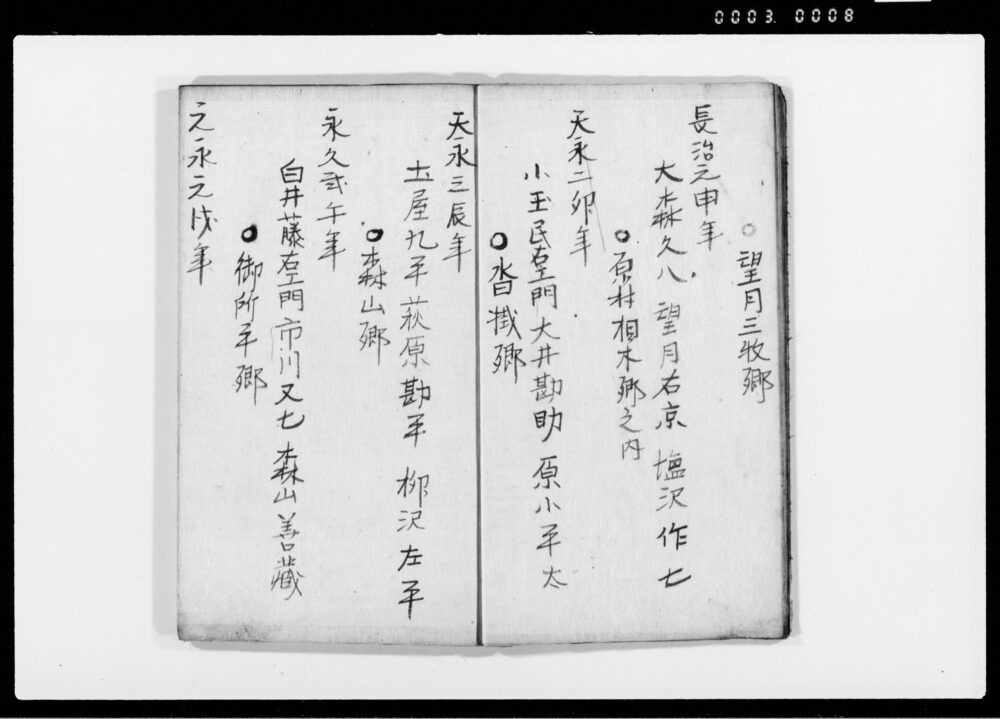 0003. 0008
○望月三牧郷
長治元申年
大森久八 望月右京 塩沢作七
○原村相木郷之内
天永二卯年
小玉民右エ門 大井勘助 原小平太
○沓掛郷
天永三辰年
土屋九平 萩原勘平 柳沢左平
○森山郷
永久弐午年
白井藤右エ門 市川又七 森山善藏
○御所平郷
元永元戌年